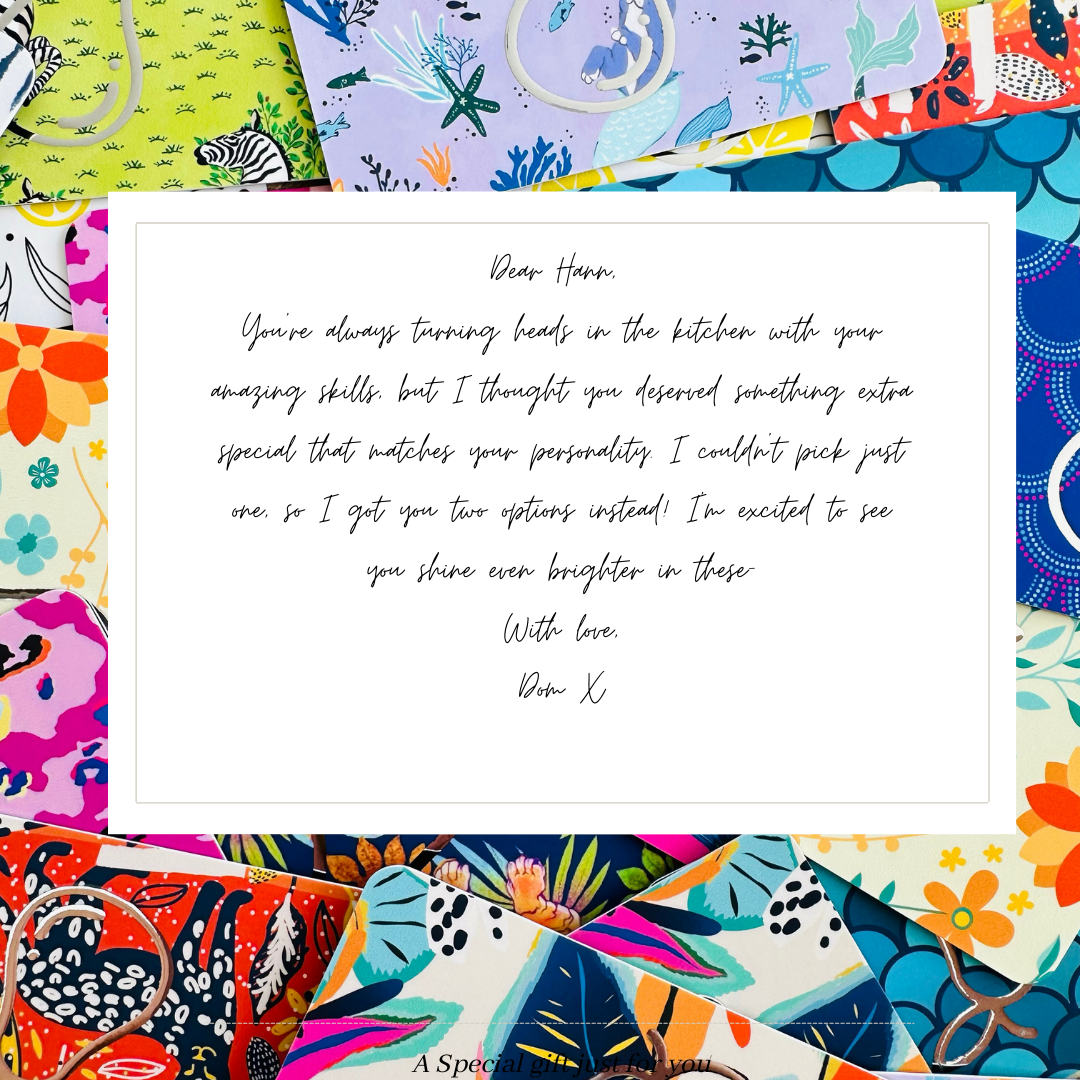 Dear Hann,
You're always turning heads in the kitchen with your
amazing skills, but I thought you deserved something extra
special that matches your personality. I couldn't pick just
one, so I got you two options instead! I'm excited to see
you shine even brighter in these-
With love,
Dom X
A Special gift just for you